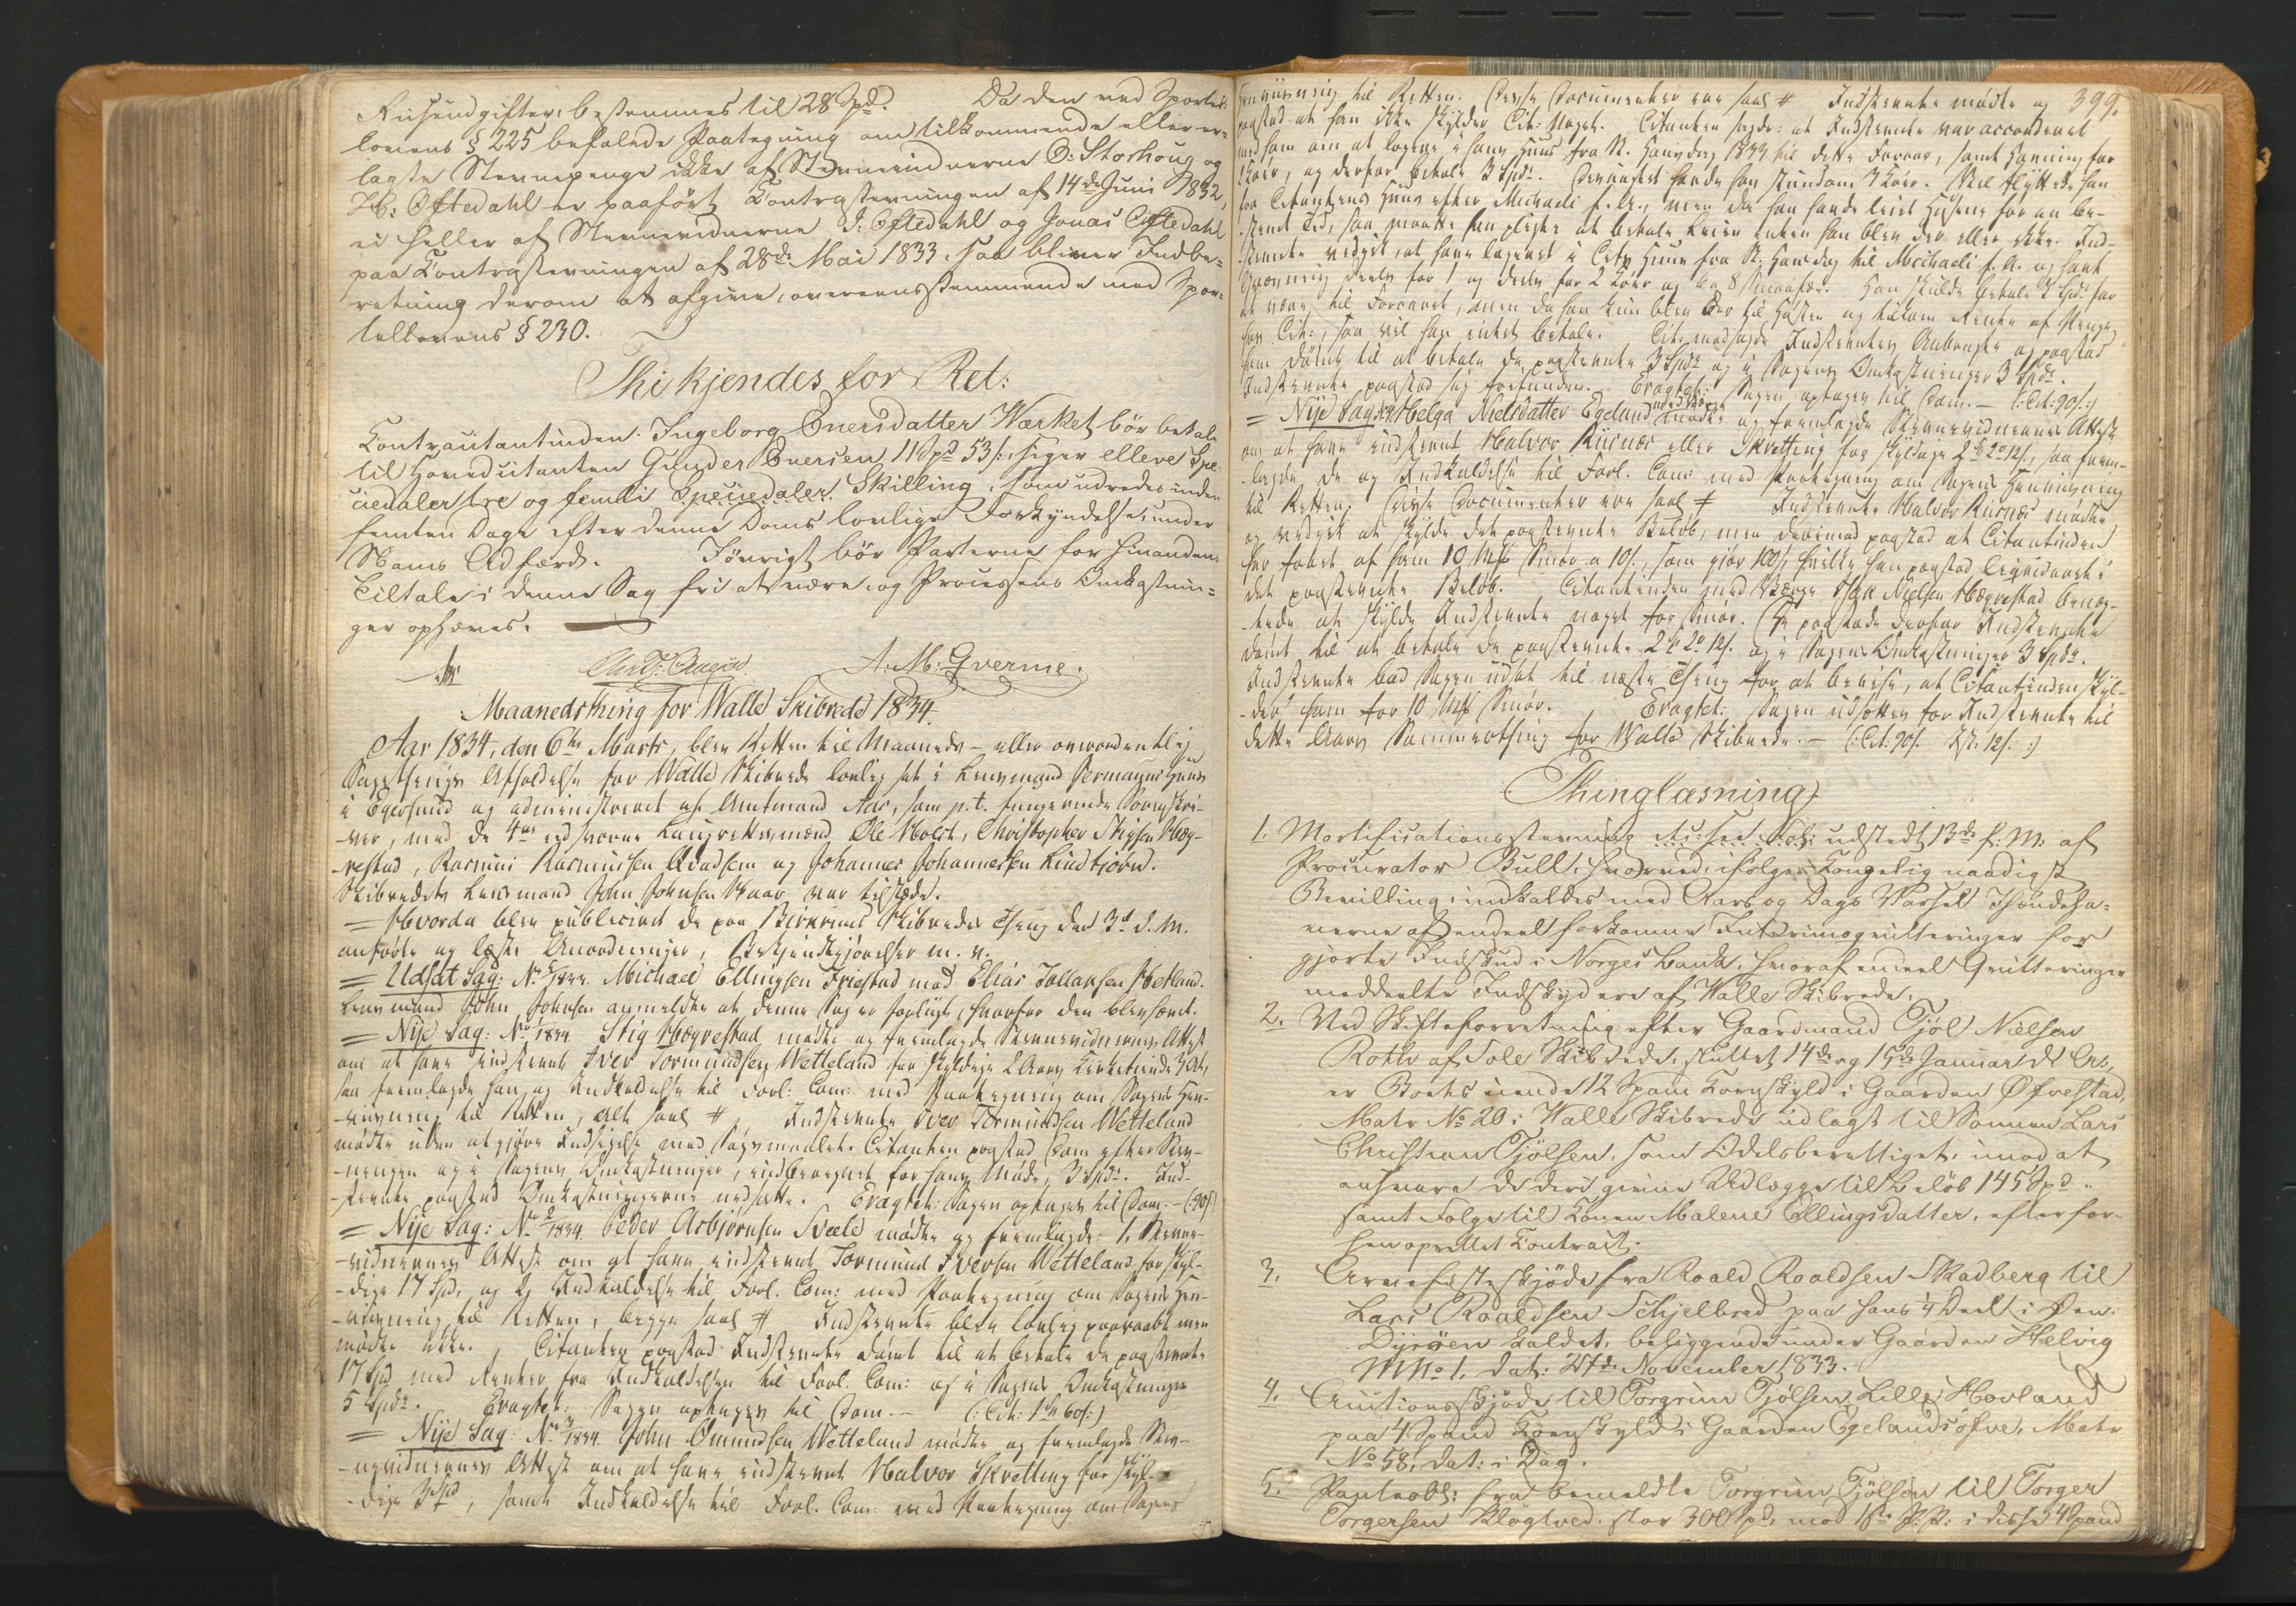 Reiseudgifter, bestemmes til 28 Spd. Da den ved Sportel-
lovens § 225 befalede Paategning om tilkommende eller er-
lagte Stevnepenge ikke af Stevnevidnerne O: Storhoug og
H: Oftedahl er paaført Contrastevningen af 14de Juni 1832,
ei heller af Stevnevidnerne J: Oftedahl og Jonas Oftedahl
paa Contrastevningen af 28de Mai 1833, saa bliver Indbe-
retning derom at afgive, overeensstemmende med Spor-
tellovens § 230.
Thi kjendes for Ret:
Contracitantinden Ingeborg Enersdatter Værket bør betale
til Hovedcitanten Gunder Enersen 11 Spd 53 s:, siger elleve Spe-
ciedaler tre og femti Speciedaler Skilling, som udredes inden
femten Dage efter denne Doms lovlige Forkyndelse, under
Nams Adfærd. Iøvrigt bør Parterne for hinandens
Tiltale i denne Sag fri at være, og Processens Omkostnin-
ger ophæves.
A. M: Qverme.
Maanedsthing for Walle Skibrede 1834.
Aar 1834, den 6te Marts, blev Retten til Maaneds- eller overordentlig
Sagethings Afholdelse for Walle Skibrede lovlig sat i Lensmand Hermanns Huus
i Egersund og administreret af Amtmand Aar, som p. t. fungerende Sorenskri-
-ver, med de 4re edsvorne Laugrettesmænd Ole Moldt, Christopher Stigsen Hæg-
-vestad, Rasmus Rasmussen Qvadsem og Johannes Johannesen Lindtjørn.
Skibredets Lensmand John Johnsen Waar var tilstede.
= Hvorda blev publiceret de paa Birkrems Skibredes Thing den 3d d. M.
anførte og læste Anordninger, Bekjendtgjørelser m. v.
= Udsat Sag: No /1833. Michael Ellingsen Friestad mod Elias Tollaksen Hetland.
Lensmand John Johnsen anmeldte at denne Sag er forligt, hvorfor den blev hævet.
= Nije Sag: No 1/1834 Stig Hægvestad mødte og fremlagde Stevnevidnernes Attest
om at have indstevnt Iver Tormundsen Wetteland for skyldige 2 Aars Kirketiende
saa fremlagde han og Indkaldelse til Forl: Com: med Paategning om Sagens Hen-
-viisning til Retten, alt saal. # Indstevnte Iver Tormundsen Wetteland
mødte uden at gjøre Indsigelse mod Søgsmaalet. Citanten paastod Dom efter Stev-
-ningen og i Sagens Omkostninger, indberegnet for hans Møde, 3 Spdr. Ind-
-stevnte paastod Omkostningerne nedsatte. Eragtet: Sagen optages til Dom. – (90 s)
= Nije Sag: No 2/1834. Peder Asbjørnsen Sveeld mødte og fremlagde: 1, Stevne-
-vidnernes Attest om at have indstevnt Tormund Iversen Wetteland, for skyl-
-dige 17 Spd, og 2, Indkaldelse til Forl. Com: med Paategning om Sagens Hen-
-viisning til Retten, begge saal. # Indstevnte blev lovlig paaraabt men
mødte ikke. Citanten paastod Indstevnte dømt til at betale de paastevnte
17 Spd med Renter fra Indkaldelsen til Forl. Com: og i Sagens Omkostninger
5 Spdr. Eragtet: Sagen optages til Dom. – (: Cit: 1 Sp 60 s:)
= Nije Sag: No 3/1834. John Ommundsen Wetteland mødte og fremlagde Stev-
-nevidnernes Attest om at have indstevnt Halvor Skretting for skyl-
-dige 3 Spd, samt Indkaldelse til Forl. Com: med Paategning om Sagens
399.
Henviisning til Retten. Disse Documenter ere saal. # Indstevnte mødte og
paastod at han ikke skylder Cit: Noget. Citanten sagde: at Indstevnte var accorderet
med ham om at logere i hans Huus fra St. Hansdag 1833 til dette Foraar, samt Havning for
Køer, og derfor betale 3 Spdr. Desuagtet havde han stundom 3 Køer. Vel flyttede han
fra Citantens Huus efter Michaeli f. A., men da han havde leiet Husene for en be-
-stemt Tid, saa maatte han pligte at betale Leien enten han blev der eller ikke. Ind-
-stevnte vedgik, at have logeret i Cits Huus fra St. Hansdag til Michaeli f. A. og havt
Havning deels for 1 og deels for 2 Køer og ca 8 Smaafæe. Han skulde betale 3 Spd for
at være til Foraaret, men da han kun blev der til Høsten og tilkom Rente af Penge
hos Cit:, saa vil han intet betale. Cit: modsagde Indstevntes Anbringde og paastod
ham dømt til at betale de paastevnte 3 Spdr og i Sagens Omkostninger 3 Spdr.
Indstevnte paastod sig frifunden. Eragtet: Sagen optages til Dom. – (: Cit: 90 s:)
= Nije Sag No 4 Helga Nielsdatter Egeland med Værge mødte og fremlagde Stevnevidnernes Attest
om at have indstevnt Halvor Riisnæs eller Skretting for skyldige 2 Sp 2 o 12 s, saa frem-
-lagde de og Indkaldelse til Forl. Com: med Paategning om Sagens Henviisning
til Retten. Disse Documenter ere saal. # Indstevnte Halvor Riisnæs mødte
og vedgik at skylde det paastevnte Beløb, men derimod paastod at Citantinden
har faaet af ham 10 Mk Smør a 10 s, som gjør 100 s, hvilke han paastod liqvideret i
det paastevnte Beløb. Citantinden med Værge Isak Nielsen Hægvestad benæg-
-tede at skylde Indstevnte noget for Smør. De paastode derfor Indstevnte
dømt til at betale de paastevnte 2 Sp 2 o 12 s. og i Sagens Omkostninger 3 Spdr.
Indstevnte bad Sagen udsat til næste Thing for at bevise, at Citantinden skyl-
-der ham for 10 Mk Smør. Eragtet: Sagen udsættes for Indstevnte til
dette Aars Sommerthing for Walle Skibrede. – (: Cit: 90 s. Ist. 12 s. :)
Thinglæsning
1. Mortificationsstevning udstedt 13de f: M: af
Procurator Bull, hvorved, ifølge Kongelig naadigst
Bevilling, indkaldes med Aars og Dags Varsel Ihændeha-
verne af endeel forkomne Interimsqvitteringer for
gjorte Indskud i Norges Bank, hvoraf endeel Qvitteringer
meddeelte Indskydere af Walle Skibrede.
2. Ved Skifteforretning efter Gaardmand Tjøl Nielsen
Rotte af Sole Skibrede, sluttet 14de og 15de Januar d: A:,
er Boets iende 12 Spam Kornskyld i Gaarden Øfrestad,
Matr No 20 i Walle Skibrede udlagt til Sønnen Lars
Christian Tjølsen, som Odelsberettiget, imod at
ansvare de deri givne Udlægge til Beløb 145 Spd.
samt Følge til Konen Malene Ellingsdatter, efter for-
hen oprettet Contract.
3. Arvefæsteskjøde fra Roald Roaldsen Skadberg til
Lars Roaldsen Schjelbred paa hans ¼ Deel i Øen
Dyrøen kaldet, beliggende under Gaarden Helvig
M No 1, dat: November 1833.
4. Auctionsskjøde til Torgrim Tjølsen Lille Hovland
paa 4 Spand Kornskyld i Gaarden Egelandsøfre, Matr
No 58, dat: i Dag.
5. Panteobl: fra bemeldte Torgrim Tjølsen til Torger
Torgersen Kløgtved, stor 300 Spd, mod 1ste P: R: i disse 4 Spand